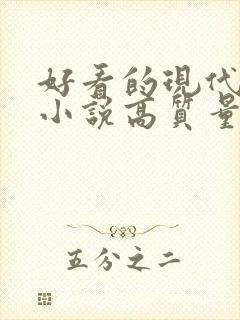 好看的现代
小説高質量
五分之二